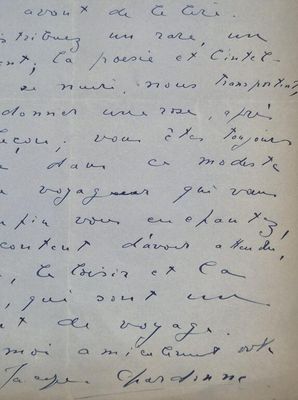 avant de le lire.
stribuez un rare, un
ent; la poésie et l'intel-
se nuire, nous transportent
donner une rose, après
leçon, vous êtes toujours
dans ce modeste
voyageur qui vous
vous en
content d'avoir attendu,
le loisir et la
, qui sont un
t de voyage.
moi amicalement votre
Jacques Chardonne